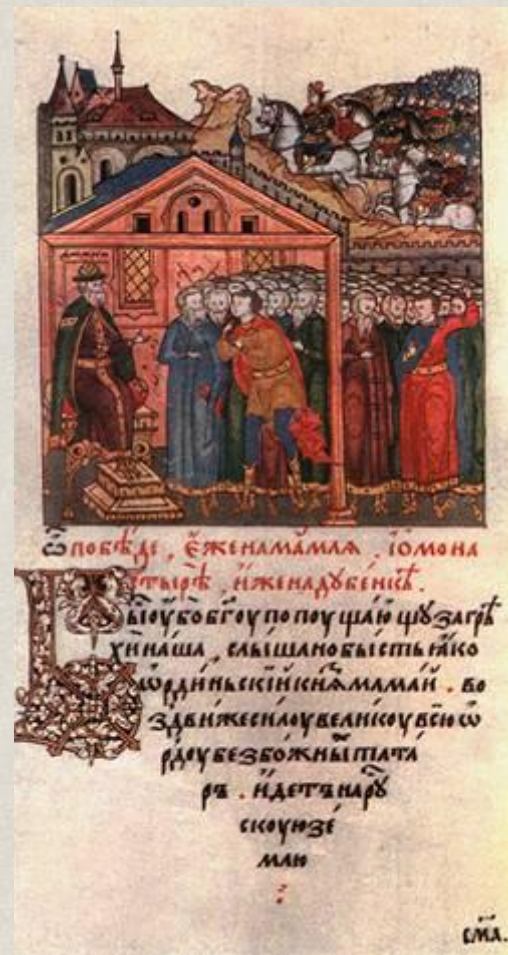 Ѡ побѣде , є́же на мама́ꙗ . їо мона
стырѣ , и́же на дубе́нкѣ .
Бы́ оубо бг҃оу попоуща́ющу за грѣ
хи́ на́ша , слы́шано бы́сть ꙗ́ко
ѡрди́ньскїи кнѧ҃ мама́й . во
здви́же си́лоу вели́коу всю̀ ѡ
рдоу безбо́жны тата́
ръ . и́детъ на рꙋ́
скоую зе́
млю
с҃м҃а.